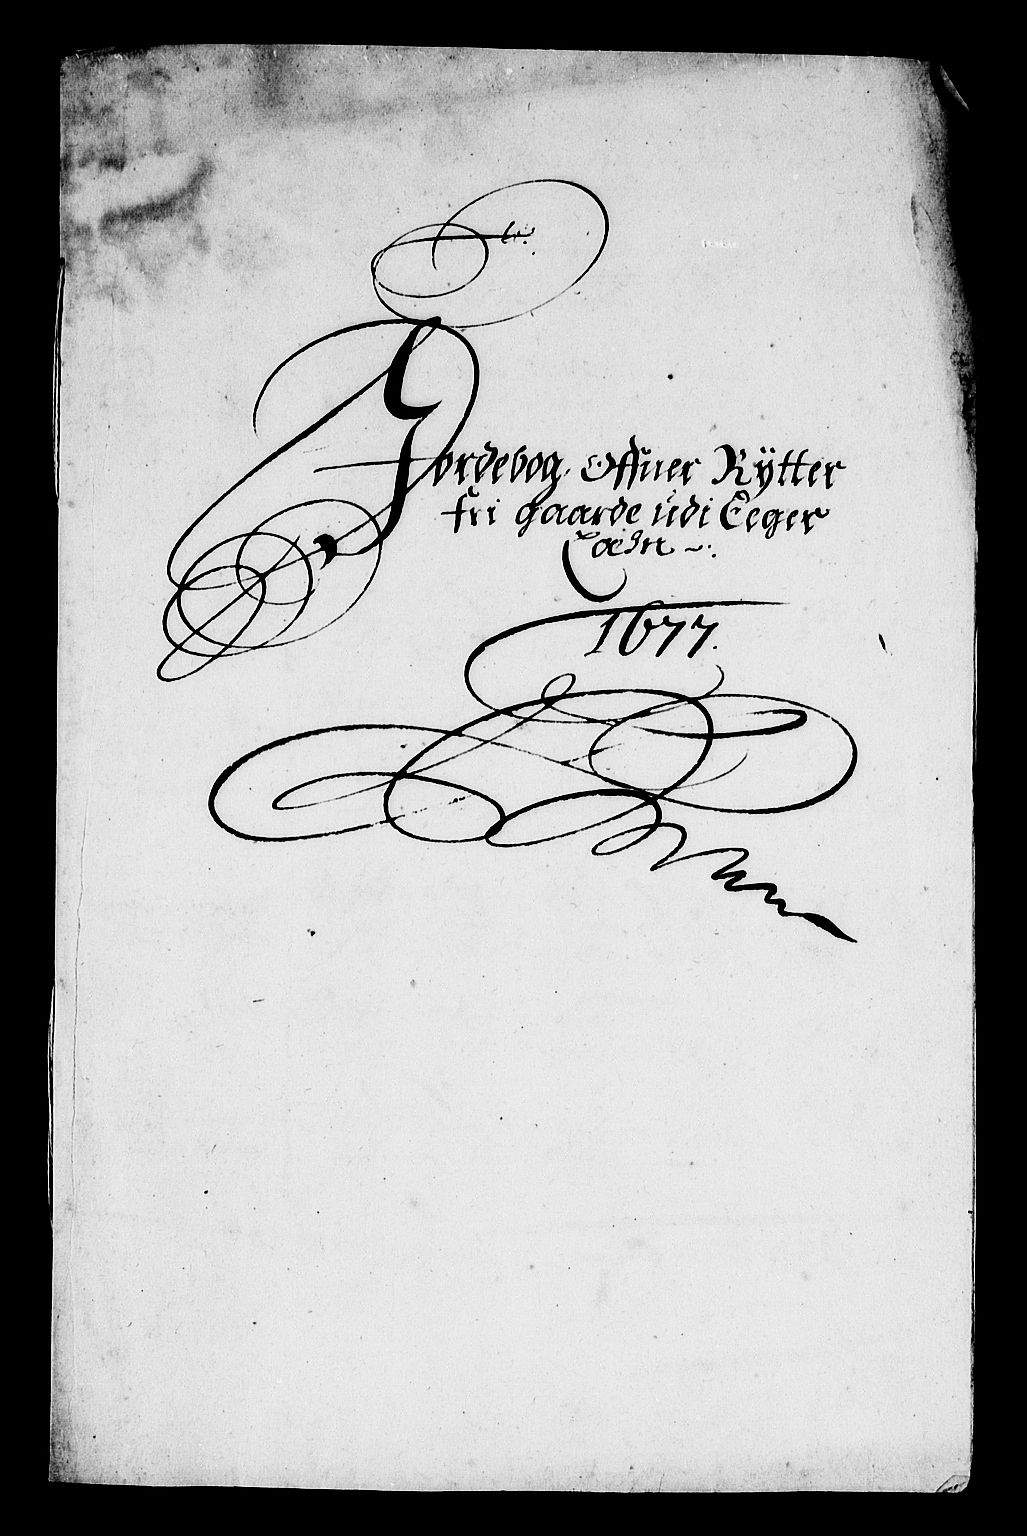 Jordebog. Offuer Rÿtter
fri gaarde udi Eeger
1677.